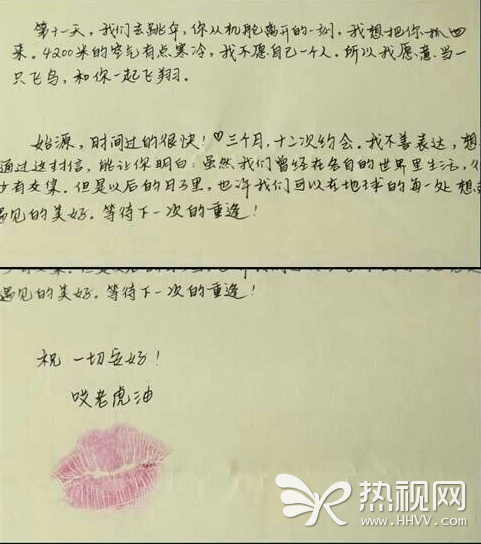 第十一天，我们去跳伞，你从机舱离开的一刻，我想把你抓回
来。4200米的空气有点寒冷，我不愿自己一个人。所以我愿意当一
只飞鸟，和你一起飞翔。
始源，时间过的很快！♡三个月，十二次约会。我不善表达，想
通过这封信，能让你明白：虽然我们曾经在各自的世界里生活，
少有交集。但是以后的日子里，也许我们可以在地球的每一处 想
遇见的美好。等待下一次的重逢！
遇见的美好。等待下一次的重逢！
祝 一切安好！
咬老虎油
热视网
www.HHVV.com